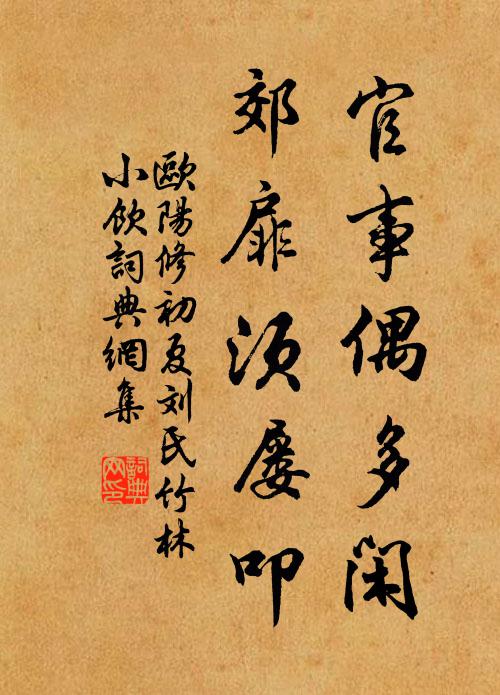 官事偶多閑
郊扉須屡叩
歐陽修初夏刘氏竹林
小飲詞典網集
詞典網印